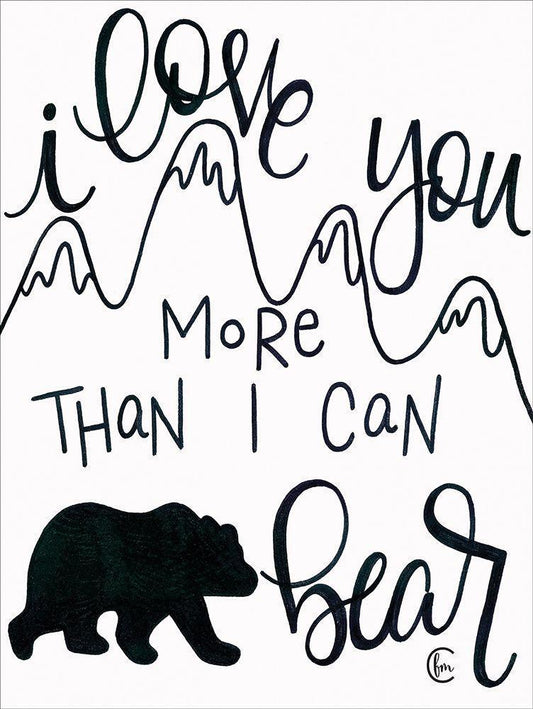 i love you
MoRe
THaN I CaN
bear
fm